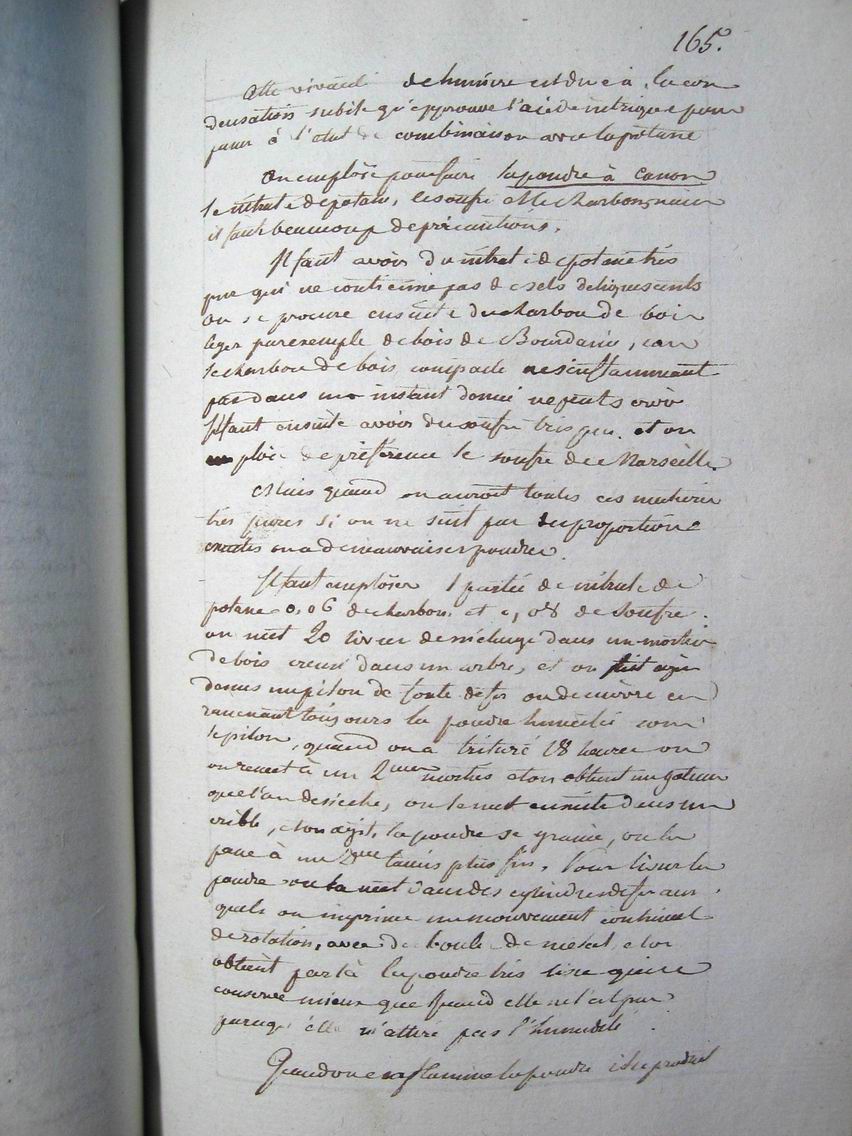 165.
cette vivacité de lumiere est due à la con
densation subite qu'epprouve l'acide nitrique pour
passer à l'état de combinaison avec la potasse
on emploïe pour faire la poudre à canon
le nitrate de potasse, le soufre et le charbon, mais
il faut beaucoup de précautions.
Il faut avoir du nitrate de potasse très
pur qui ne contienne pas de sels deliquescents
on se procure ensuite du charbon de bois
léger par exemple de bois de Bourdaine, car
le charbon de bois compacte ne s'enflammant
pas dans un instant donné
Il faut ensuite avoir du soufre tris pur et on
emploie de préférence le soufre de Marseille
Mais quand on auroit toutes ces matieres
très pures si on ne suit pas les proportions
exactes on a de mauvaises poudres.
Il faut emploïer 1 partie de nitrate de
potasse 0,06 de charbon et 0,08 de soufre.
on met 20 livres de mélange dans un mortier
de bois creusé dans un arbre, et on fait agir
dessus un pilon de fonte de fer ou de cuivre en
ramenant toujours la poudre humectée sous
le pilon, quand on a trituré 18 heures on
on remet à un 2eme mortier et on obtient un gateau
que l'on desseche, on le met ensuite dans un
crible, et on agite, la poudre se graine, on la
passe à un 2eme tamis plus fin. Pour lisser la
poudre on la met dans des cylindres de fer aux
quels on imprime un mouvement continuel
de rotation, avec des boules de metal, et on
obtient par là la poudre tris lisse qui se
conserve mieux que quand elle ne l'est pas
parcequ'elle n'attire pas l'humidité.
Quand on enflamme la poudre il se produit